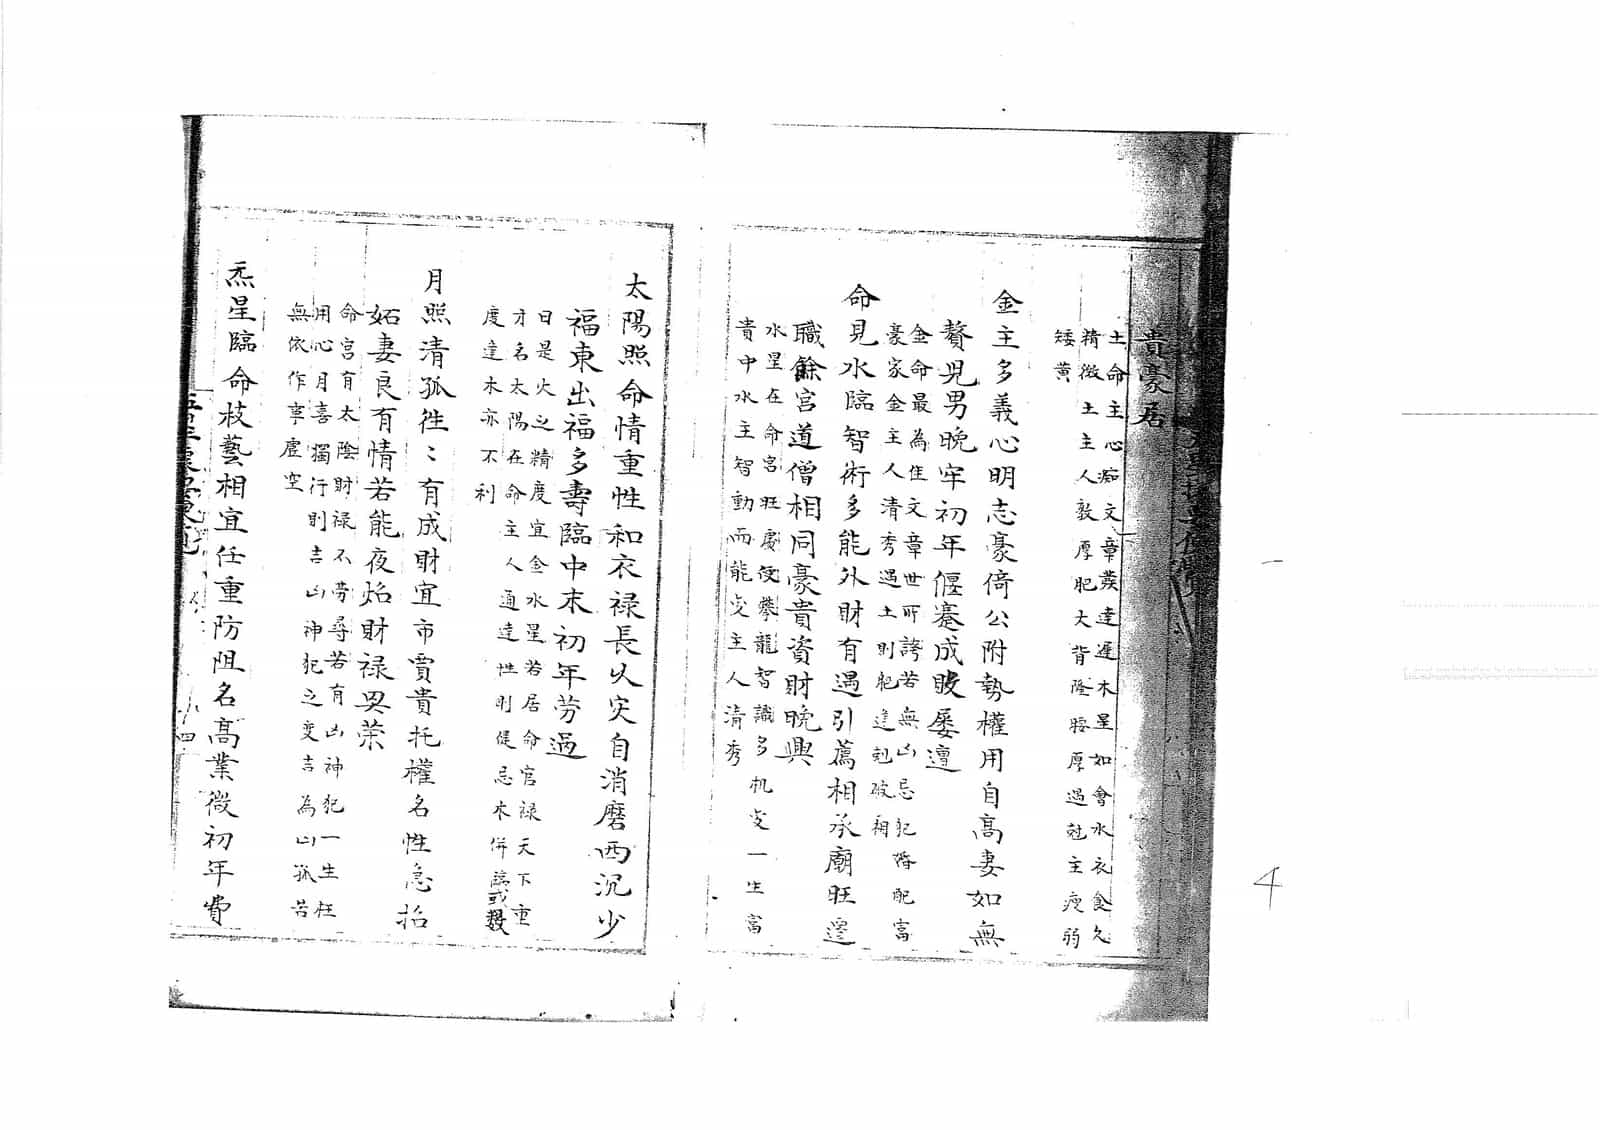 貴豪居
土命主心痴文章蕟達遲木星如會水衣食久
精微土主人敦厚肥大背隆腰厚過尅主瘦弱
矮黄
金主多義心明志豪倚公附勢權用自高妻如無
贅見男晚牢初年偃蹇成破屡邅
金命最為佳文章世所誇若無凶忌犯婚配富
豪家金主人清秀遇土則肥逢尅破相
命見水臨智術多能外財有遇引薦相承廟旺遷
職餘宮道僧相同豪貴資財晚興
水星在命宮旺慶便攀龍智識多机变一生富
貴中水主智動而能变主人清秀
太陽照命情重性和衣禄長以灾自消磨西沉少
福東出福多壽臨中末初年劳過
日是火之精度宜金水星若居命官禄天下重
才名太陽在命主人通達性剛健忌木併臨或
度逢木亦不利
月照清孤徃〻有成財宜市賈貴托權名性急招
妬妻良有情若能夜焰財禄異荣
命宮有太陰財禄不劳尋若有凶神犯一生枉
用心月喜獨行則吉凶神犯之变吉為凶孤苦
無依作事虚空
炁星臨命枝藝相宜任重防阻名高業微初年費
四
4